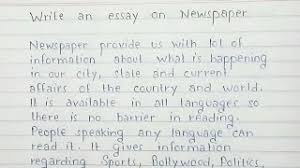 Write an essay on Newspaper
Newspaper provide us with lot of
information about what is happening
in our city, state and current
affairs of the country and world.
It is available in all languages so
there is no barrier in reading.
People speaking any language can
read it. It gives information
regarding Sports, Bollywood, Politics,